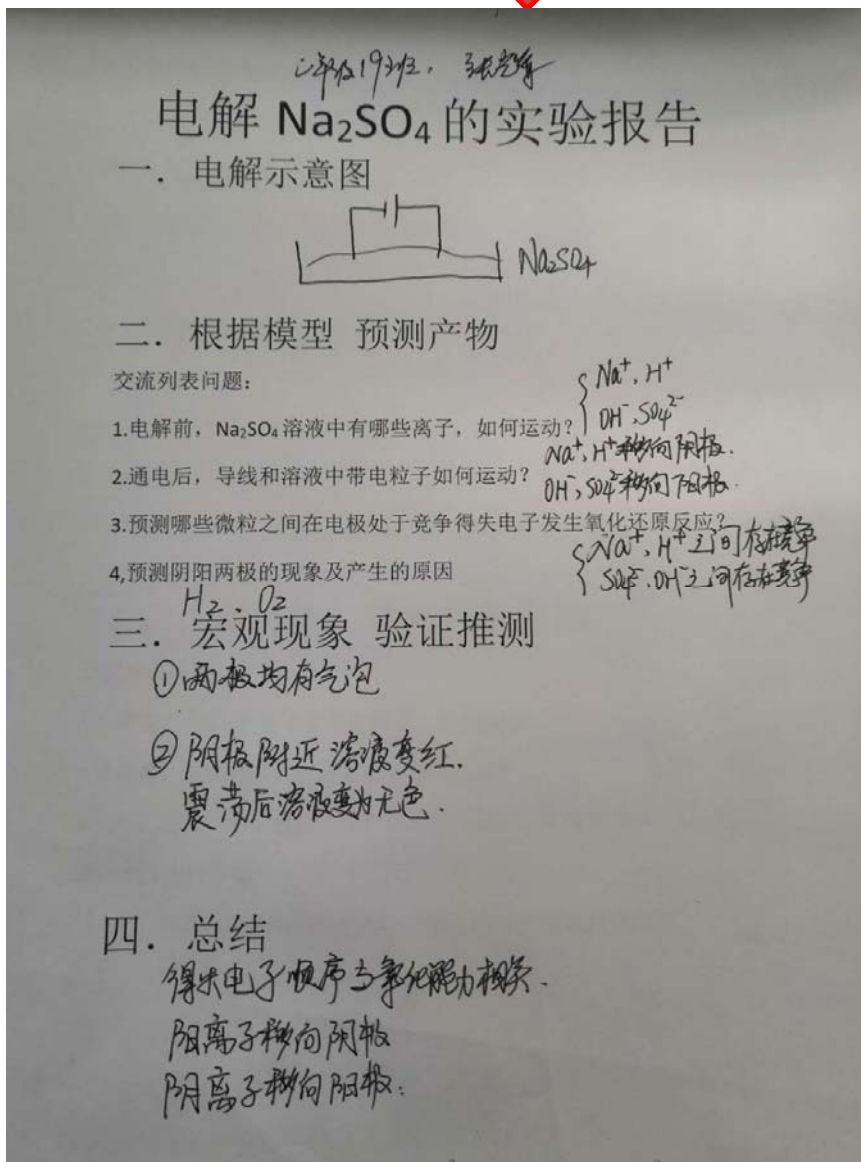 二年级19班,
电解 Na₂SO₄ 的实验报告
一. 电解示意图
Na₂SO₄
二. 根据模型 预测产物
交流列表问题:
Na⁺、H⁺
OH⁻、SO₄²⁻
1.电解前,Na₂SO₄ 溶液中有哪些离子,如何运动?
Na⁺、H⁺移向阴极.
2.通电后,导线和溶液中带电粒子如何运动?
OH⁻、SO₄²⁻移向阳极.
3.预测哪些微粒之间在电极处于竞争得失电子发生氧化还原反应?
Na⁺、H⁺之间存在竞争
4,预测阴阳两极的现象及产生的原因
SO₄²⁻、OH⁻之间存在竞争
H₂、O₂
三. 宏观现象 验证推测
①两极均有气泡
②阴极附近溶液变红.
震荡后溶液变为无色.
四. 总结
得失电子顺序与氧化能力相关.
阳离子移向阴极
阴离子移向阳极.